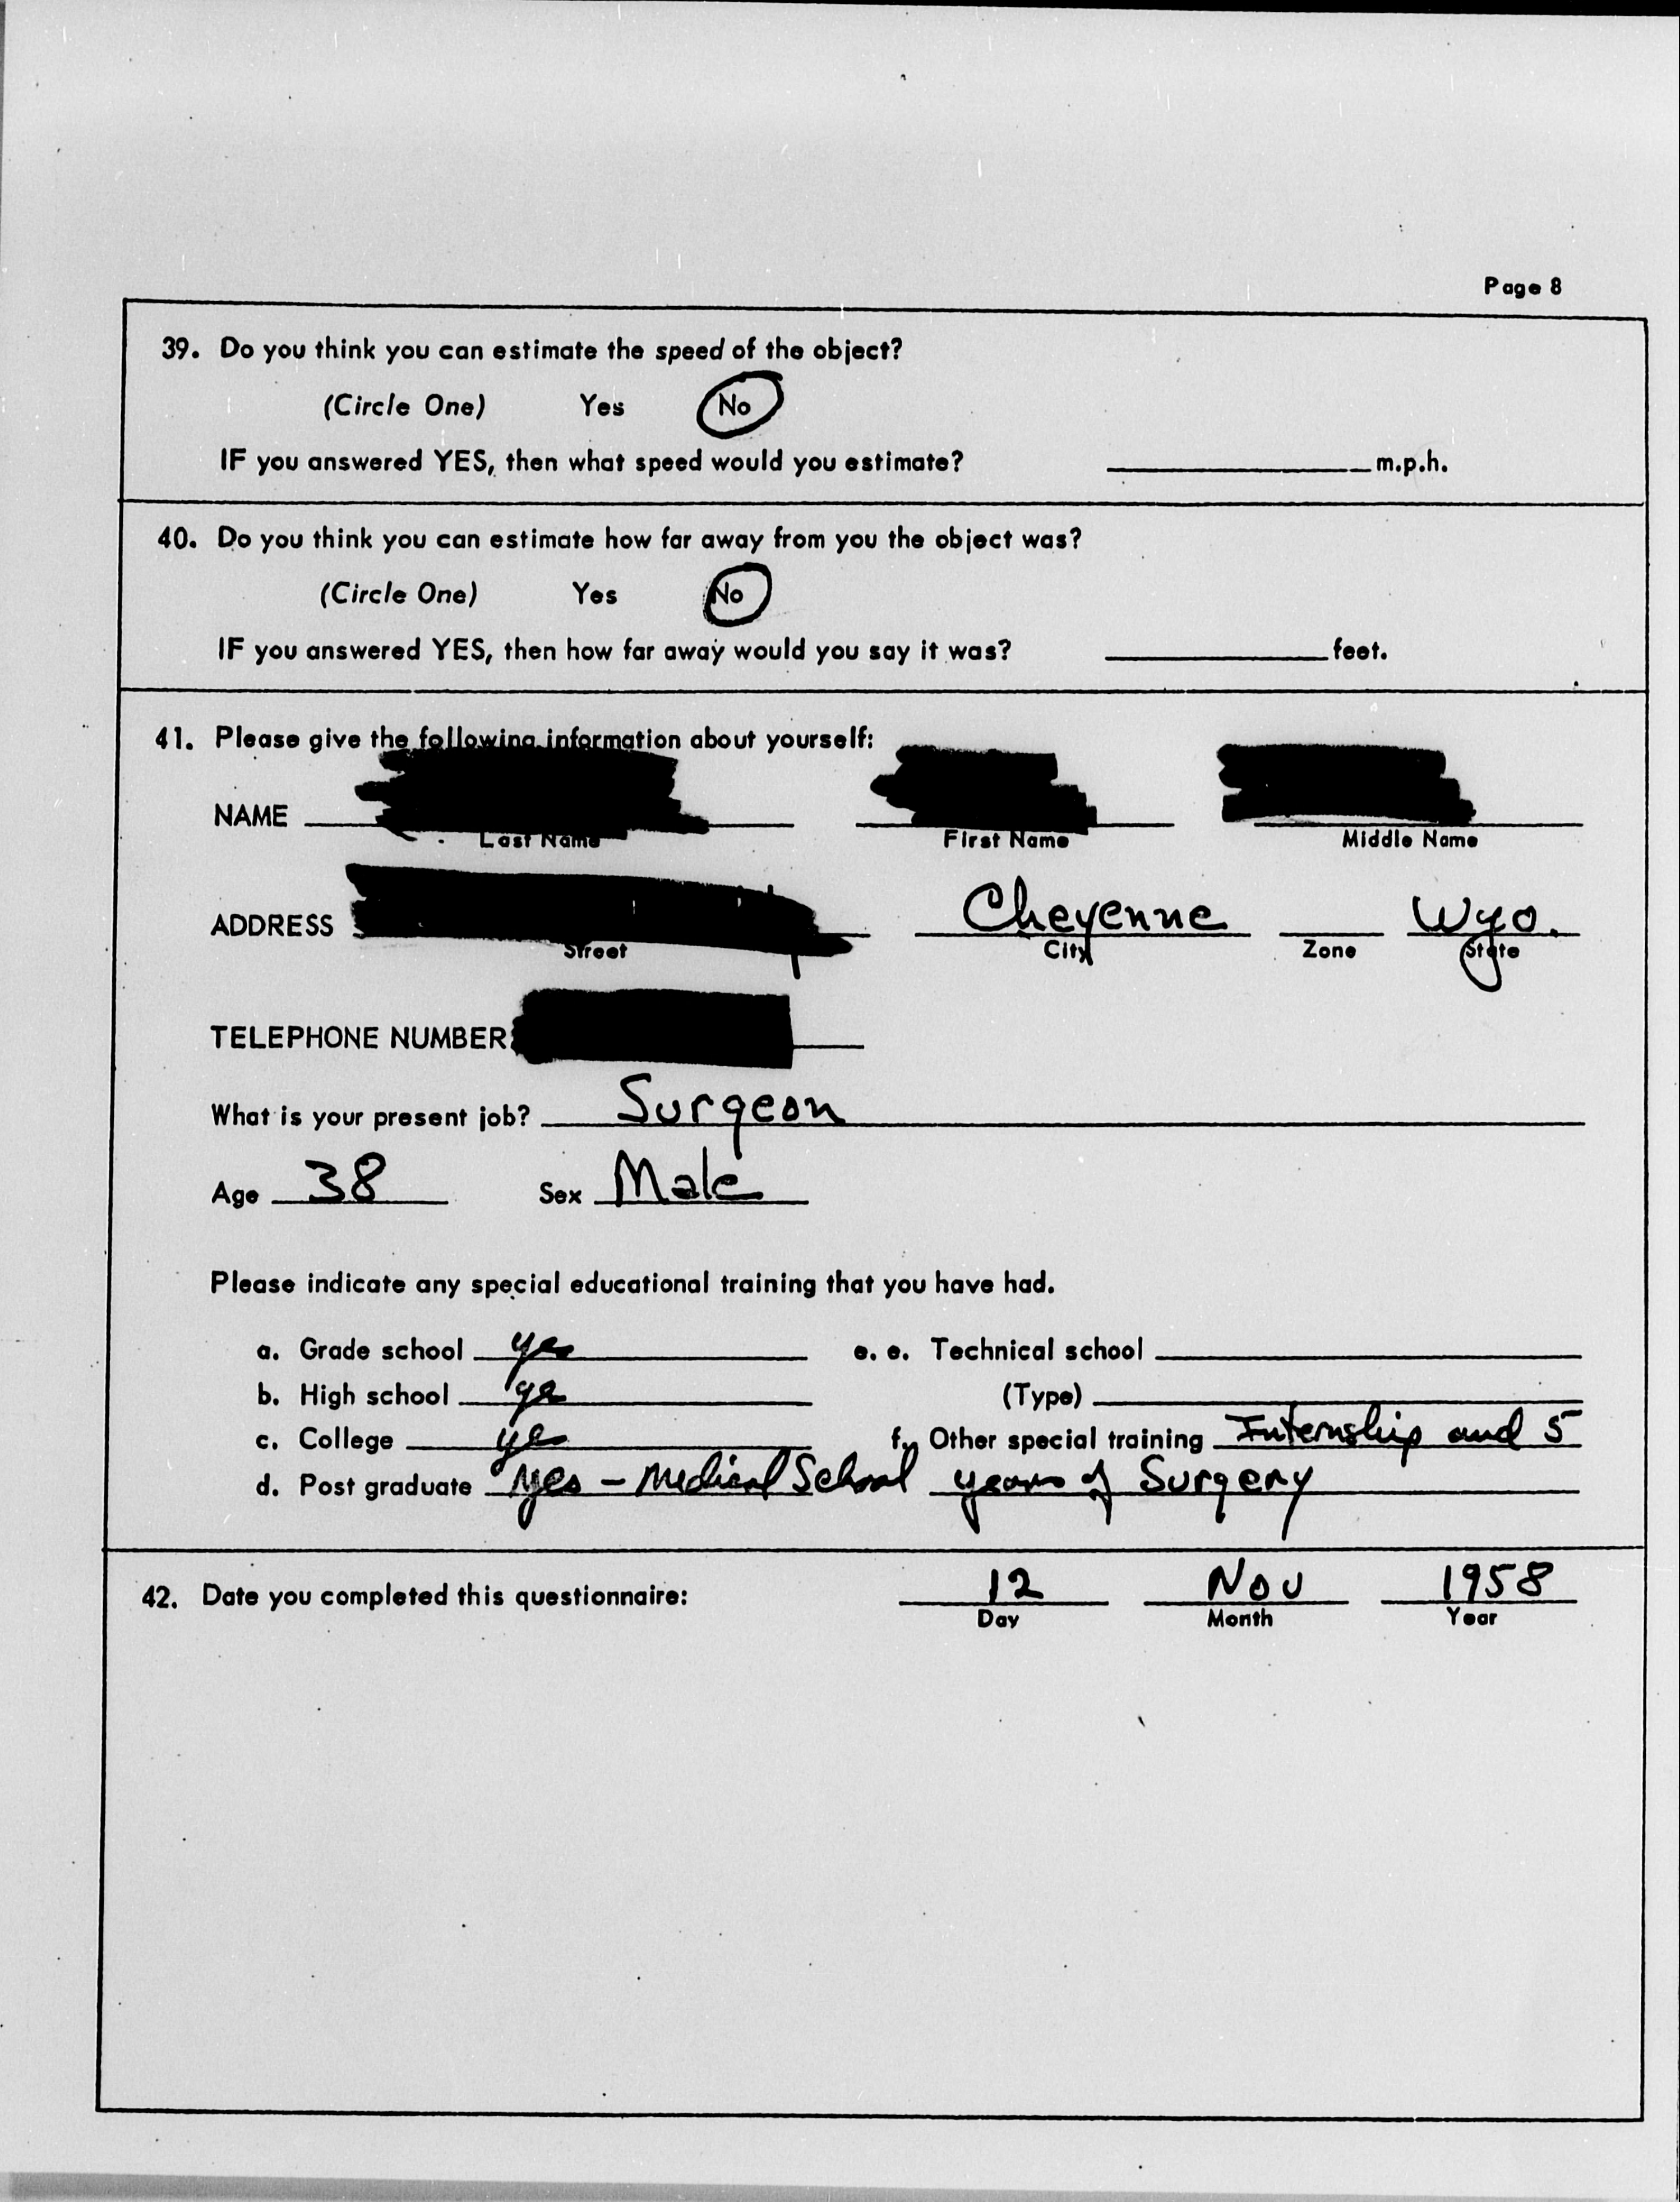 Page 8
39. Do you think you can estimate the speed of the object?
(Circle One) Yes No
IF you answered YES, then what speed would you estimate? m.p.h.
40. Do you think you can estimate how far away from you the object was?
(Circle One) Yes No
IF you answered YES, then how far away would you say it was? feet.
41. Please give the following information about yourself:
NAME
Last Name First Name Middle Name
ADDRESS Cheyenne Wyo.
Street City Zone State
TELEPHONE NUMBER
What is your present job? Surgeon
Age 38 Sex Male
Please indicate any special educational training that you have had.
a. Grade school yes e. e. Technical school
b. High school yes (Type)
c. College yes f. Other special training Internship and 5
d. Post graduate yes - Medical School years of Surgery
42. Date you completed this questionnaire: 12 Nov 1958
Day Month Year